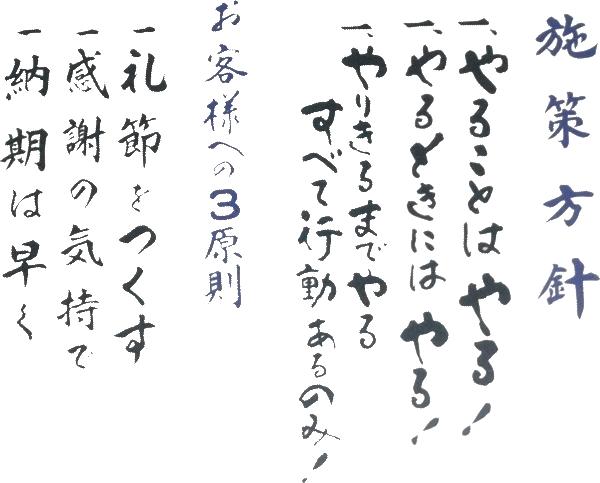 施策方針
一、やることは やる!
一、やるときには やる!
一、やりきるまで やる
すべて行動 あるのみ!
お客様への3原則
一 礼節をつくす
一 感謝の気持で
一 納期は早く